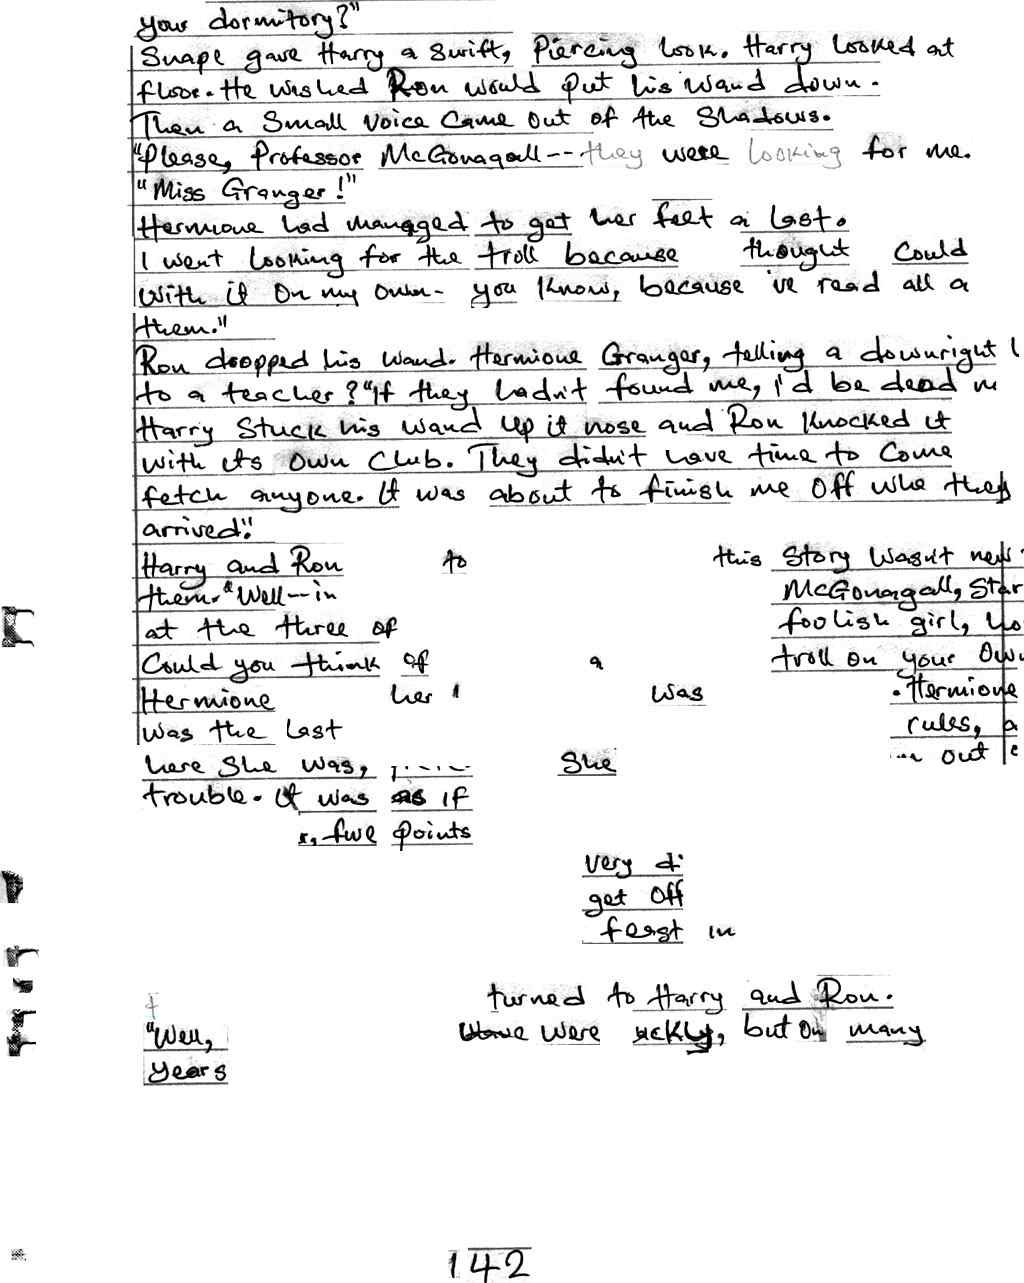 your dormitory?"
Snape gave Harry a swift, Piercing look. Harry looked at
floor. He wished Ron would put his wand down.
Then a Small voice came out of the Shadows.
"Please, Professor McGonagall -- they were looking for me.
"Miss Granger!"
Hermione had managed to get her feet a last.
I went looking for the troll because thought Could
with it on my own - you know, because i've read all a
them."
Ron dropped his wand. Hermione Granger, telling a downright l
to a teacher? "If they hadn't found me, i'd be dead n
Harry Stuck his wand up it nose and Ron Knocked it
with its own Club. They didn't have time to Come
fetch anyone. It was about to finish me Off whe they
arrived."
Harry and Ron to this Story Wasn't new
them. "Well -- in McGonagall, Star
at the three of foolish girl, ho
Could you think of a troll on your Own
Hermione her was . Hermione
was the Last rules, a
here She was, She out
trouble. It was as if
five points
very di
get Off
feast in
turned to Harry and Ron.
"Well, were uckly, but on many
years
142